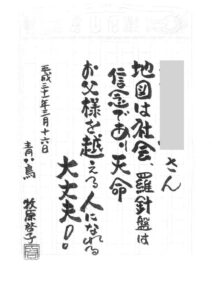 さん
地図は社会、羅針盤は
信念であり天命
お父様を越える人になれる
大丈夫!!
平成三十一年三月十六日
青い鳥 牧原啓子